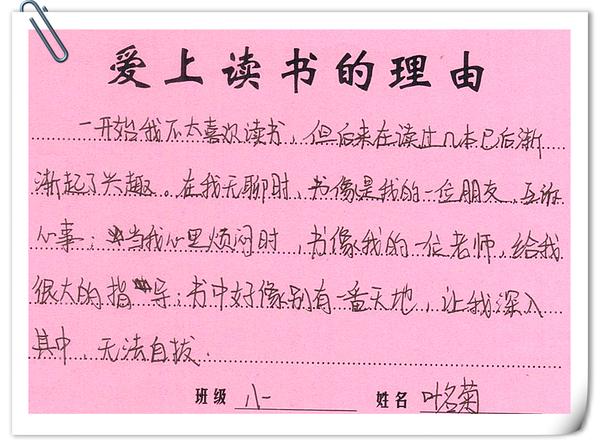 爱上读书的理由
一开始我不太喜欢读书,但后来在读过几本已后渐
渐起了兴趣。在我无聊时,书像是我的一位朋友,互诉
心事;当我心里烦闷时,书像我的一位老师,给我
很大的指导;书中好像别有一番天地,让我深入
其中 无法自拔.
班级 八一 姓名 叶名菊